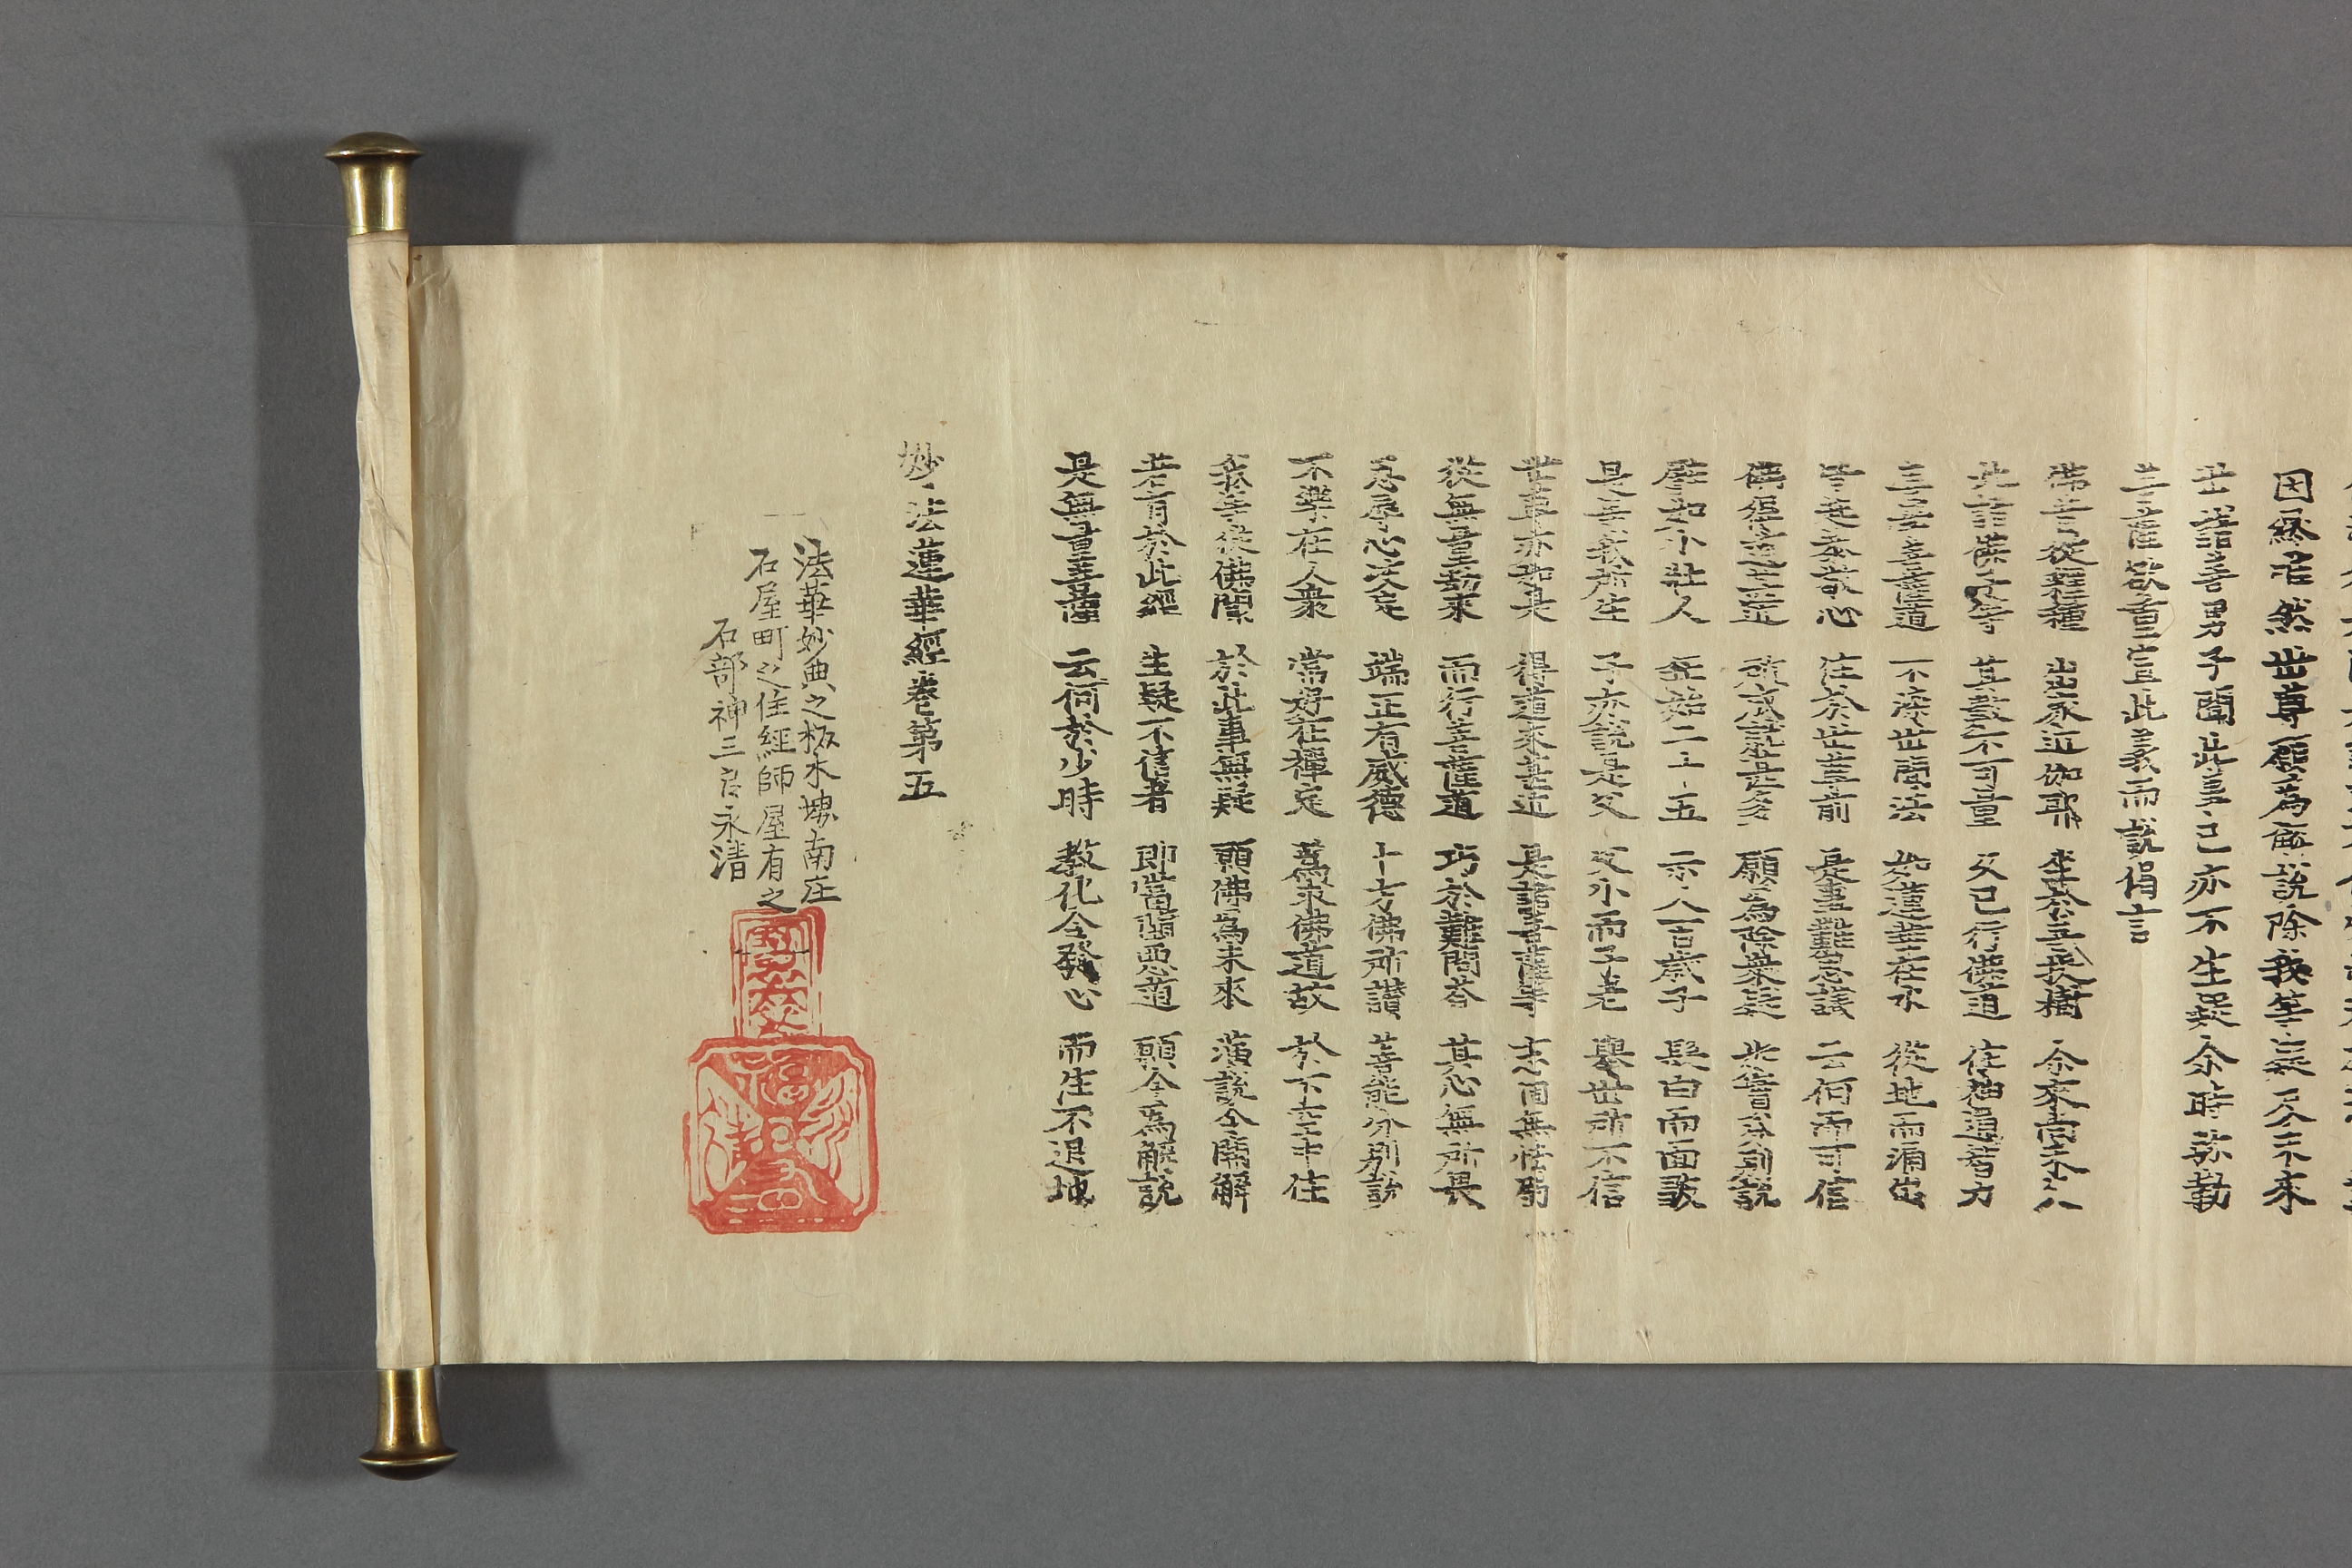 因縁唯然世尊願爲解說除我等疑及未來
世諸善男子聞此事已亦不生疑尒時弥勒
菩薩欲重宣此義而說偈言
佛昔從釋種　出家近伽耶　坐於菩提樹　尒來尚未久
此諸佛子等　其數不可量　久已行佛道　住神通智力
善學菩薩道　不染世間法　如蓮華在水　從地而涌出
皆起恭敬心　住於世尊前　是事難思議　云何而可信
佛得道甚近　所成就甚多　願爲除衆疑　如實分別說
譬如少壯人　年始二十五　示人百歲子　髮白而面皺
是等我所生　子亦說是父　父少而子老　舉世所不信
世尊亦如是　得道來甚近　是諸菩薩等　志固無怯弱
從無量劫來　而行菩薩道　巧於難問荅　其心無所畏
忍辱心決定　端正有威德　十方佛所讃　善能分別說
不樂在人衆　常好在禪定　爲求佛道故　於下空中住
我等從佛聞　於此事無疑　願佛爲未來　演說令開解
若有於此經　生疑不信者　即當墮惡道　願今爲解說
是無量菩薩　云何於少時　教化令發心　而住不退地
妙法蓮華經卷第五
法華妙典之板木堺南庄
石屋町之住經師屋有之
石部神三良永清